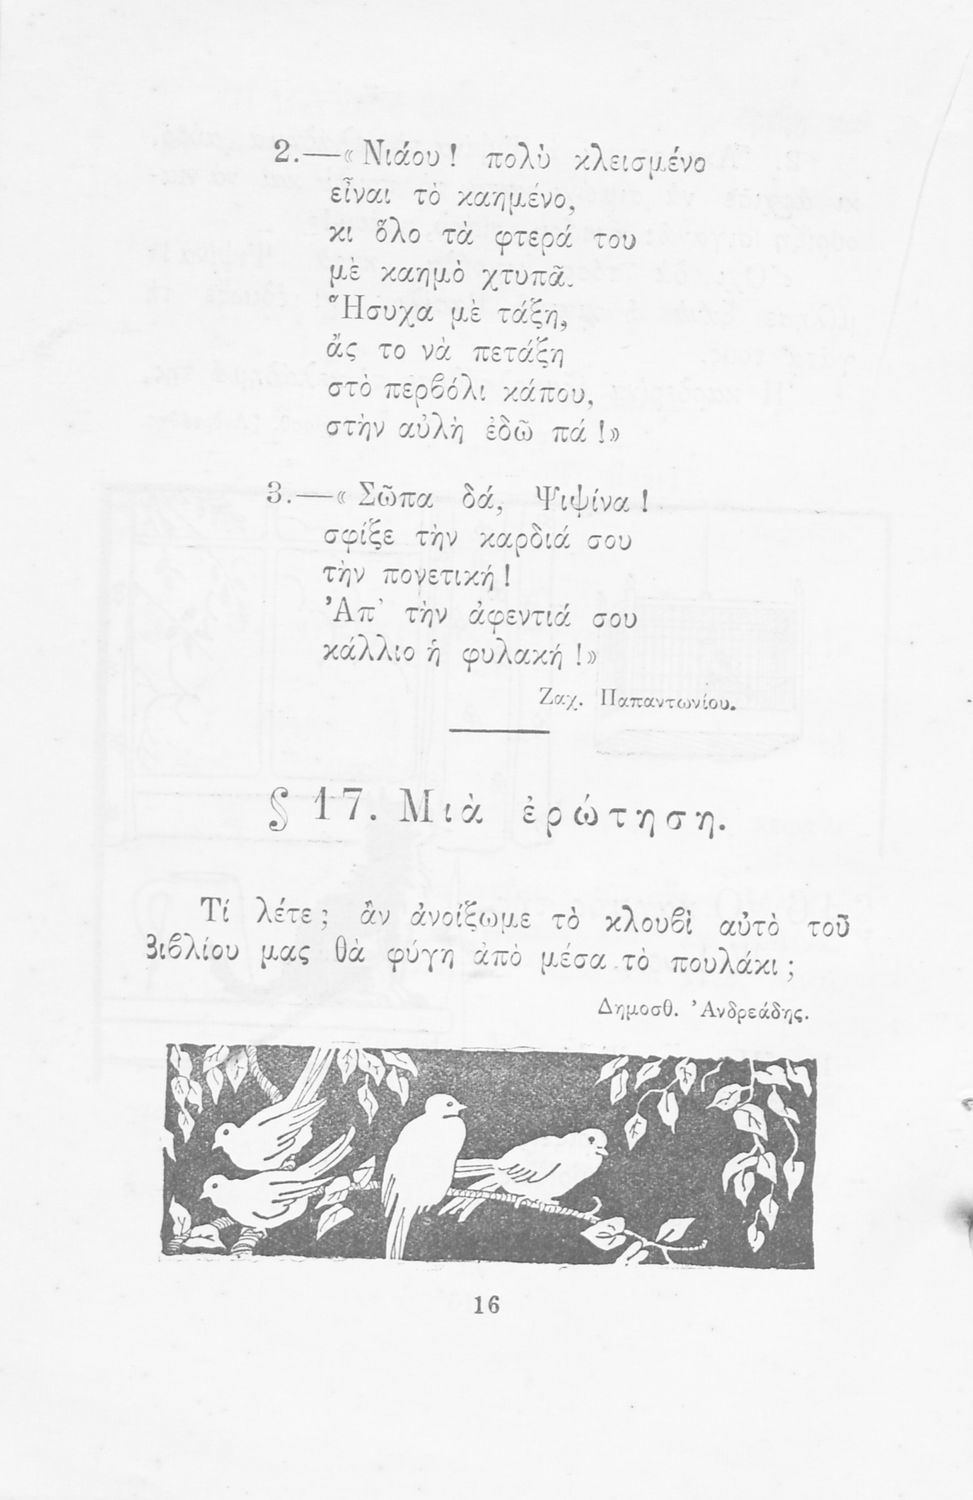 2.—« Νιάου ! πολὺ κλεισμένο
εἶναι τὸ καημένο,
κι ὅλο τὰ φτερά του
μὲ καημὸ χτυπᾶ.
Ἥσυχα μὲ τάξη,
ἄς το νὰ πετάξη
στὸ περβόλι κάπου,
στὴν αὐλὴ ἐδῶ πά !»
3.—« Σῶπα δά, Ψιψίνα !
σφίξε τὴν καρδιά σου
τὴν πονετική !
Ἀπ' τὴν ἀφεντιά σου
κάλλιο ἡ φυλακή !»
Ζαχ. Παπαντωνίου.
§ 17. Μιὰ ἐρώτηση.
Τί λέτε ; ἂν ἀνοίξωμε τὸ κλουβὶ αὐτὸ τοῦ
βιβλίου μας θὰ φύγη ἀπὸ μέσα τὸ πουλάκι ;
Δημοσθ. Ἀνδρεάδης.
16